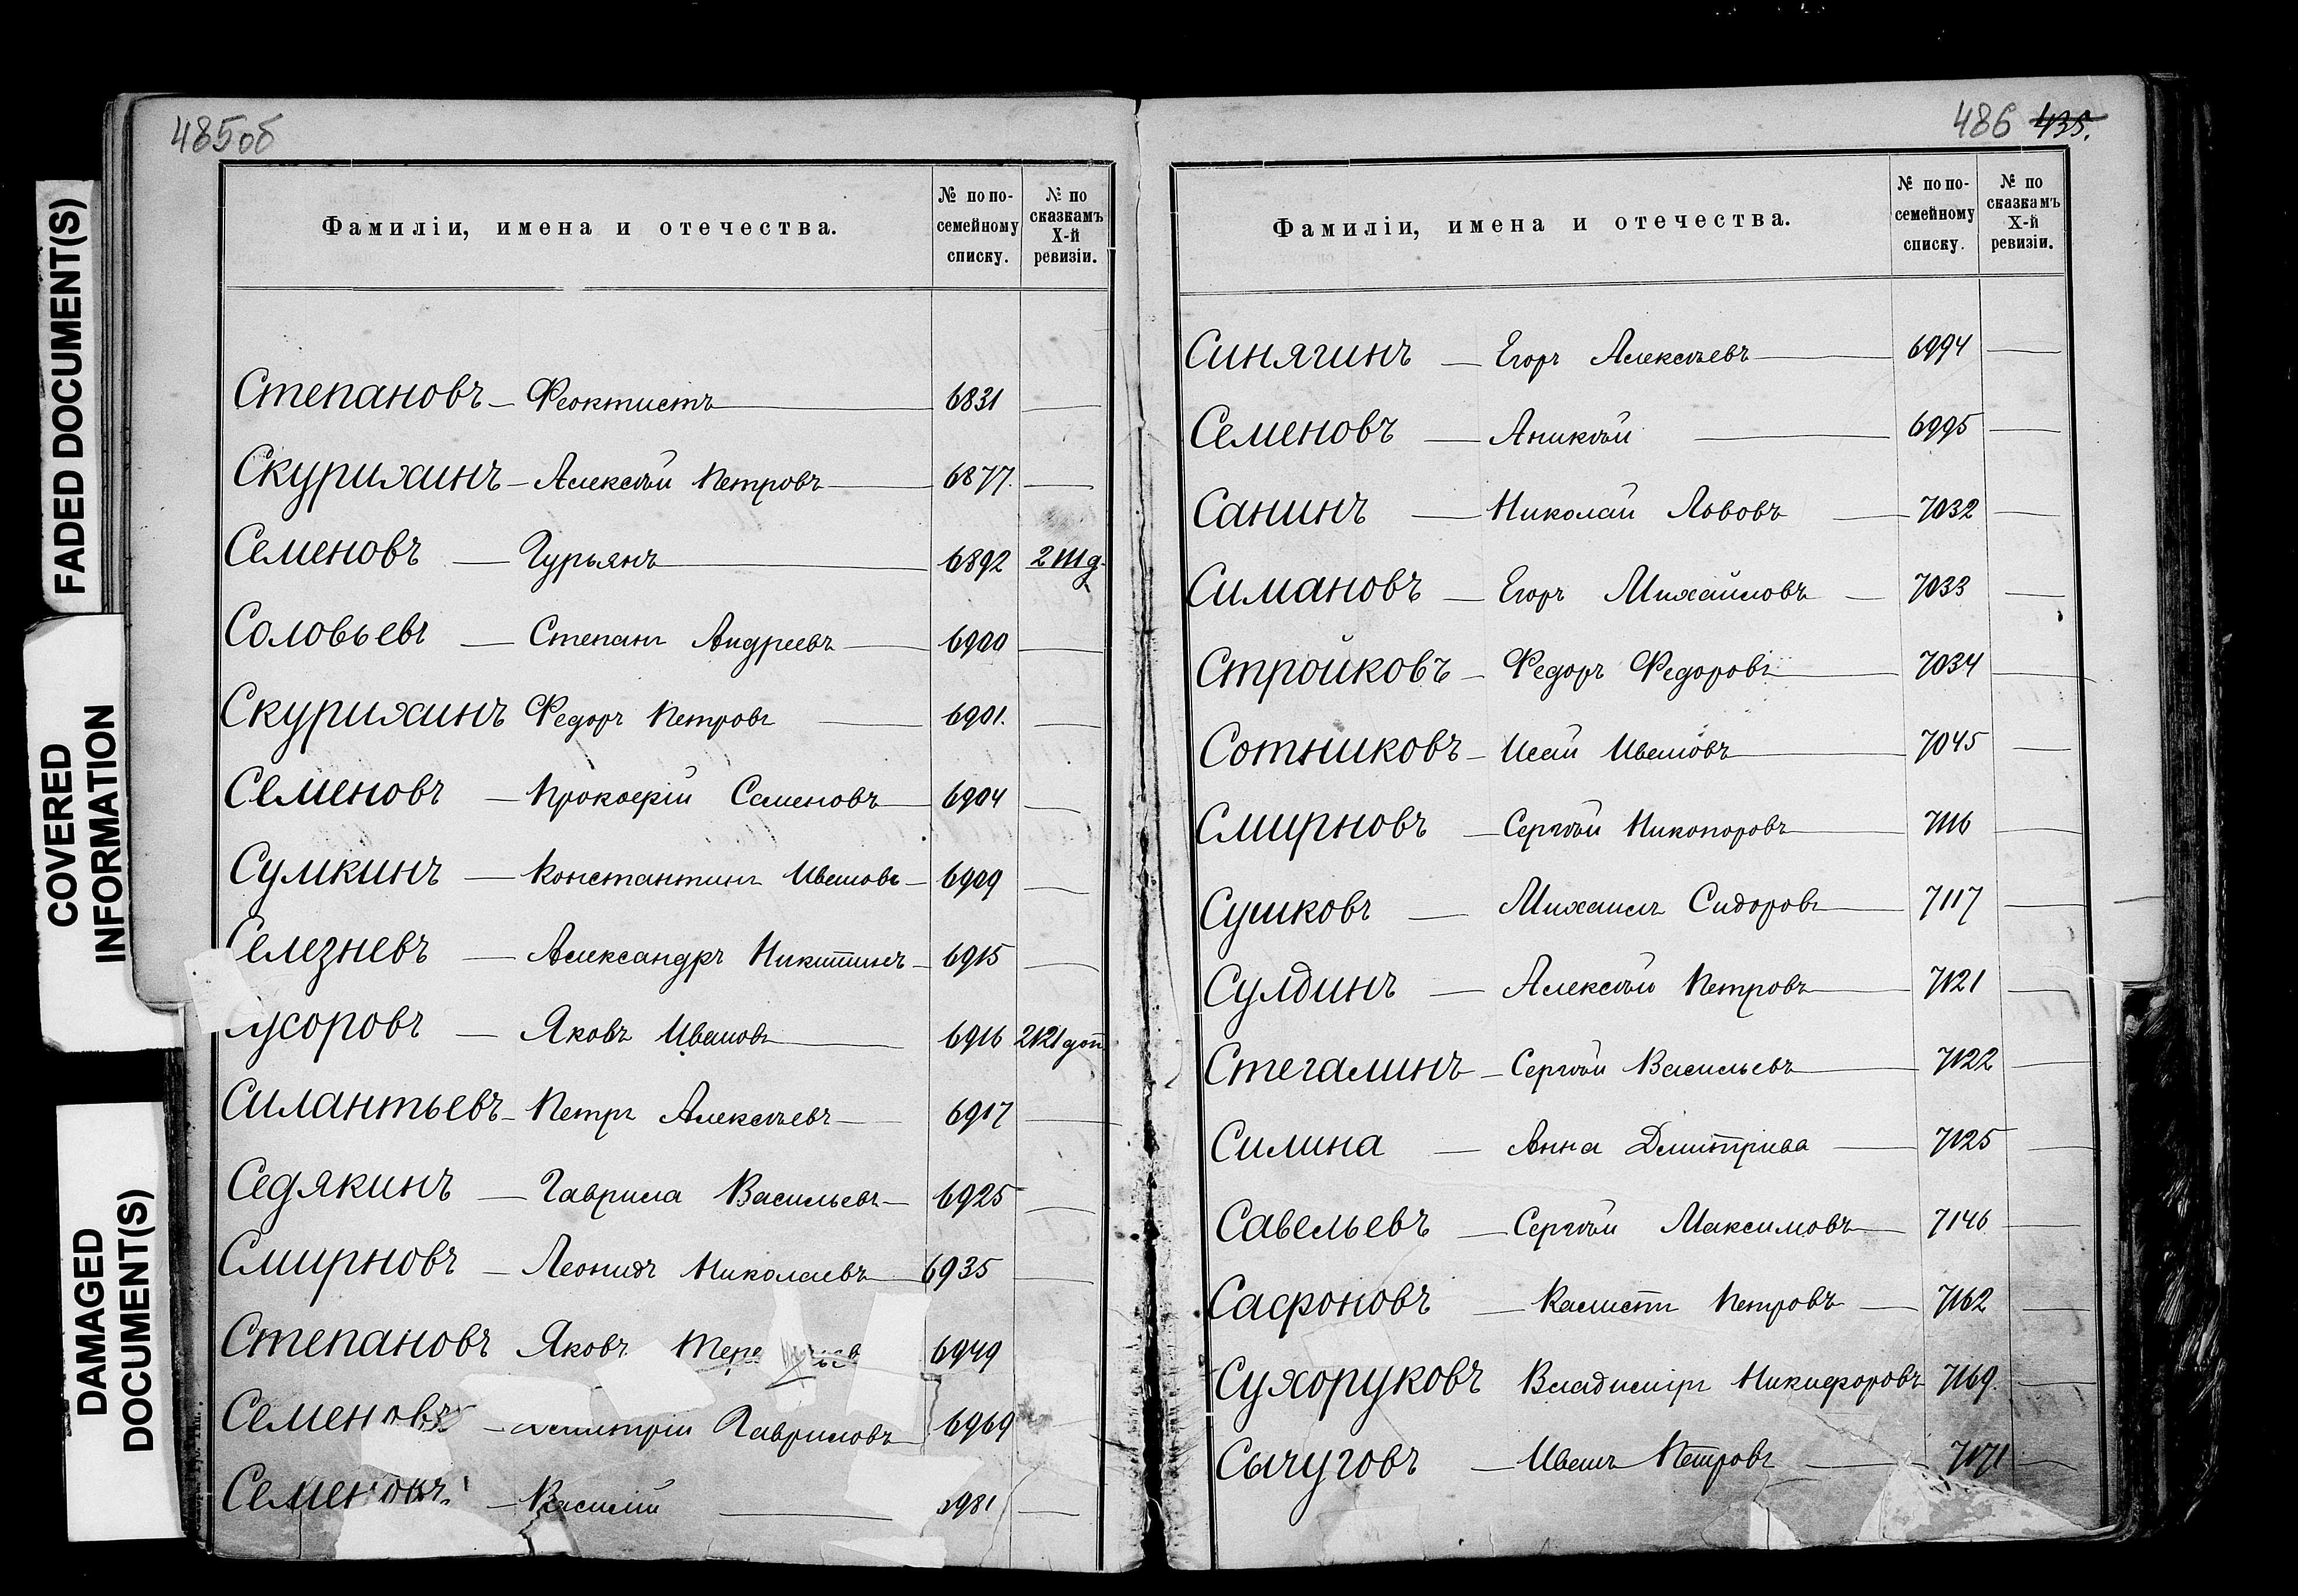 FADED DOCUMENT(S)
COVERED
INFORMATION
DAMAGED
DOCUMENT(S)
485об
Фамиліи, имена и отечества.
№ по по-
семейному
списку.
№ по
сказкамъ
X-й
ревизіи.
Степановъ — Феоктистъ 6831 —
Скурихинъ — Алексѣй Петровъ 6877. —
Семеновъ — Гурьянъ 6892
Соловьевъ — Степанъ Андреевъ 6900 —
Скурихинъ Федоръ Петровъ 6901. —
Семеновъ — Прокофій Семеновъ 6904 —
Сумкинъ — Константинъ Ивановъ 6909 —
Селезневъ — Александръ Никитинъ 6915 —
усоровъ — Яковъ Ивановъ 6916 2121 доп
Силантьевъ — Петръ Алексѣевъ 6917 —
Седякинъ — Гаврила Васильевъ 6925 —
Смирновъ — Леонидъ Николаевъ 6935 —
Степановъ Яковъ 6949
Семеновъ — Дмитрій Гавриловъ 6969
Семеновъ — Василій 6981 —
486 435.
Фамиліи, имена и отечества.
№ по по-
семейному
списку.
№ по
сказкамъ
X-й
ревизіи.
Синягинъ — Егоръ Алексѣевъ 6994 —
Семеновъ — Аникѣй 6995 —
Санинъ — Николай Львовъ 7032 —
Симановъ — Егоръ Михайловъ 7033 —
Стройковъ — Федоръ Федоровъ 7034 —
Сотниковъ — Исай Ивановъ 7045 —
Смирновъ — Сергѣй Никоноровъ 7116 —
Сушковъ — Михаилъ Сидоровъ 7117 —
Сулдинъ — Алексѣй Петровъ 7121 —
Стегалинъ — Сергѣй Васильевъ 7122 —
Силина — Анна Дмитріева 7125 —
Савельевъ — Сергѣй Максимовъ 7146 —
Сафоновъ — Калистъ Петровъ 7162 —
Сухоруковъ Владиміръ Никифоровъ 7169. —
Сычуговъ — Иванъ Петровъ 7171 —